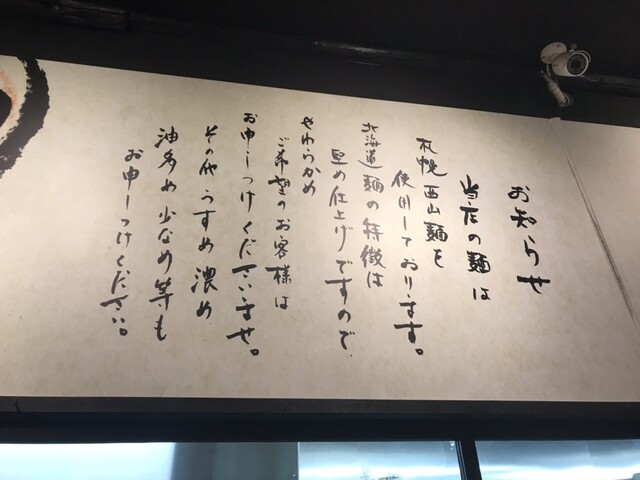 お知らせ
当店の麺は
札幌西山麺を
使用しております。
北海道麺の特徴は
豆め仕上げですので、
やわらかめ
ご希望のお客様は
お申しつけくださいませ。
その他うすめ濃め
油多め少なめ等も
お申しつけください。